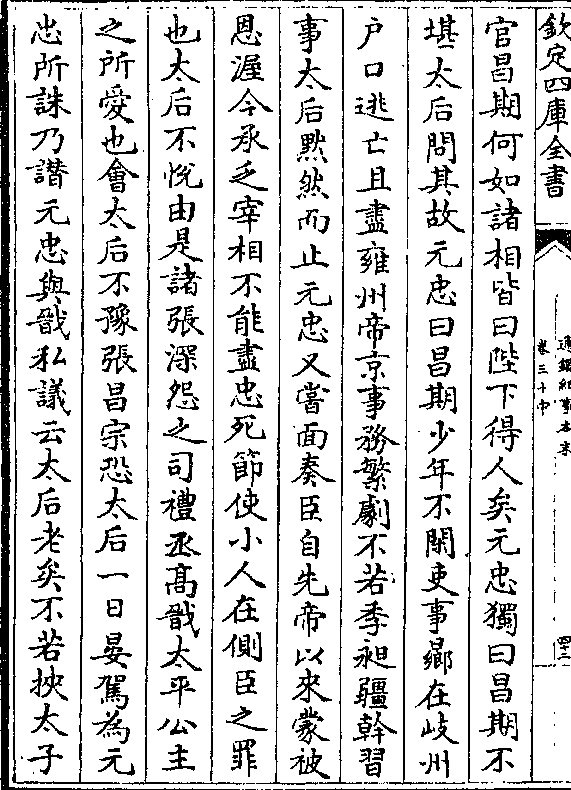 欽定四庫全書
通鑑紀事本末
卷三十中
官昌期何如諸相皆曰陛下得人矣元忠獨曰昌期不
堪太后問其故元忠曰昌期少年不閑吏事鄉在岐州
户口逃亡且盡雍州帝京事務繁劇不若季昶彊幹習
事太后黙然而止元忠又嘗面奏臣自先帝以來蒙被
恩渥今承乏宰相不能盡忠死節使小人在側臣之罪
也太后不悦由是諸張深怨之司禮丞髙戩太平公主
之所愛也會太后不豫張昌宗恐太后一日晏駕為元
忠所誅乃譖元忠與戩私議云太后老矣不若挾太子